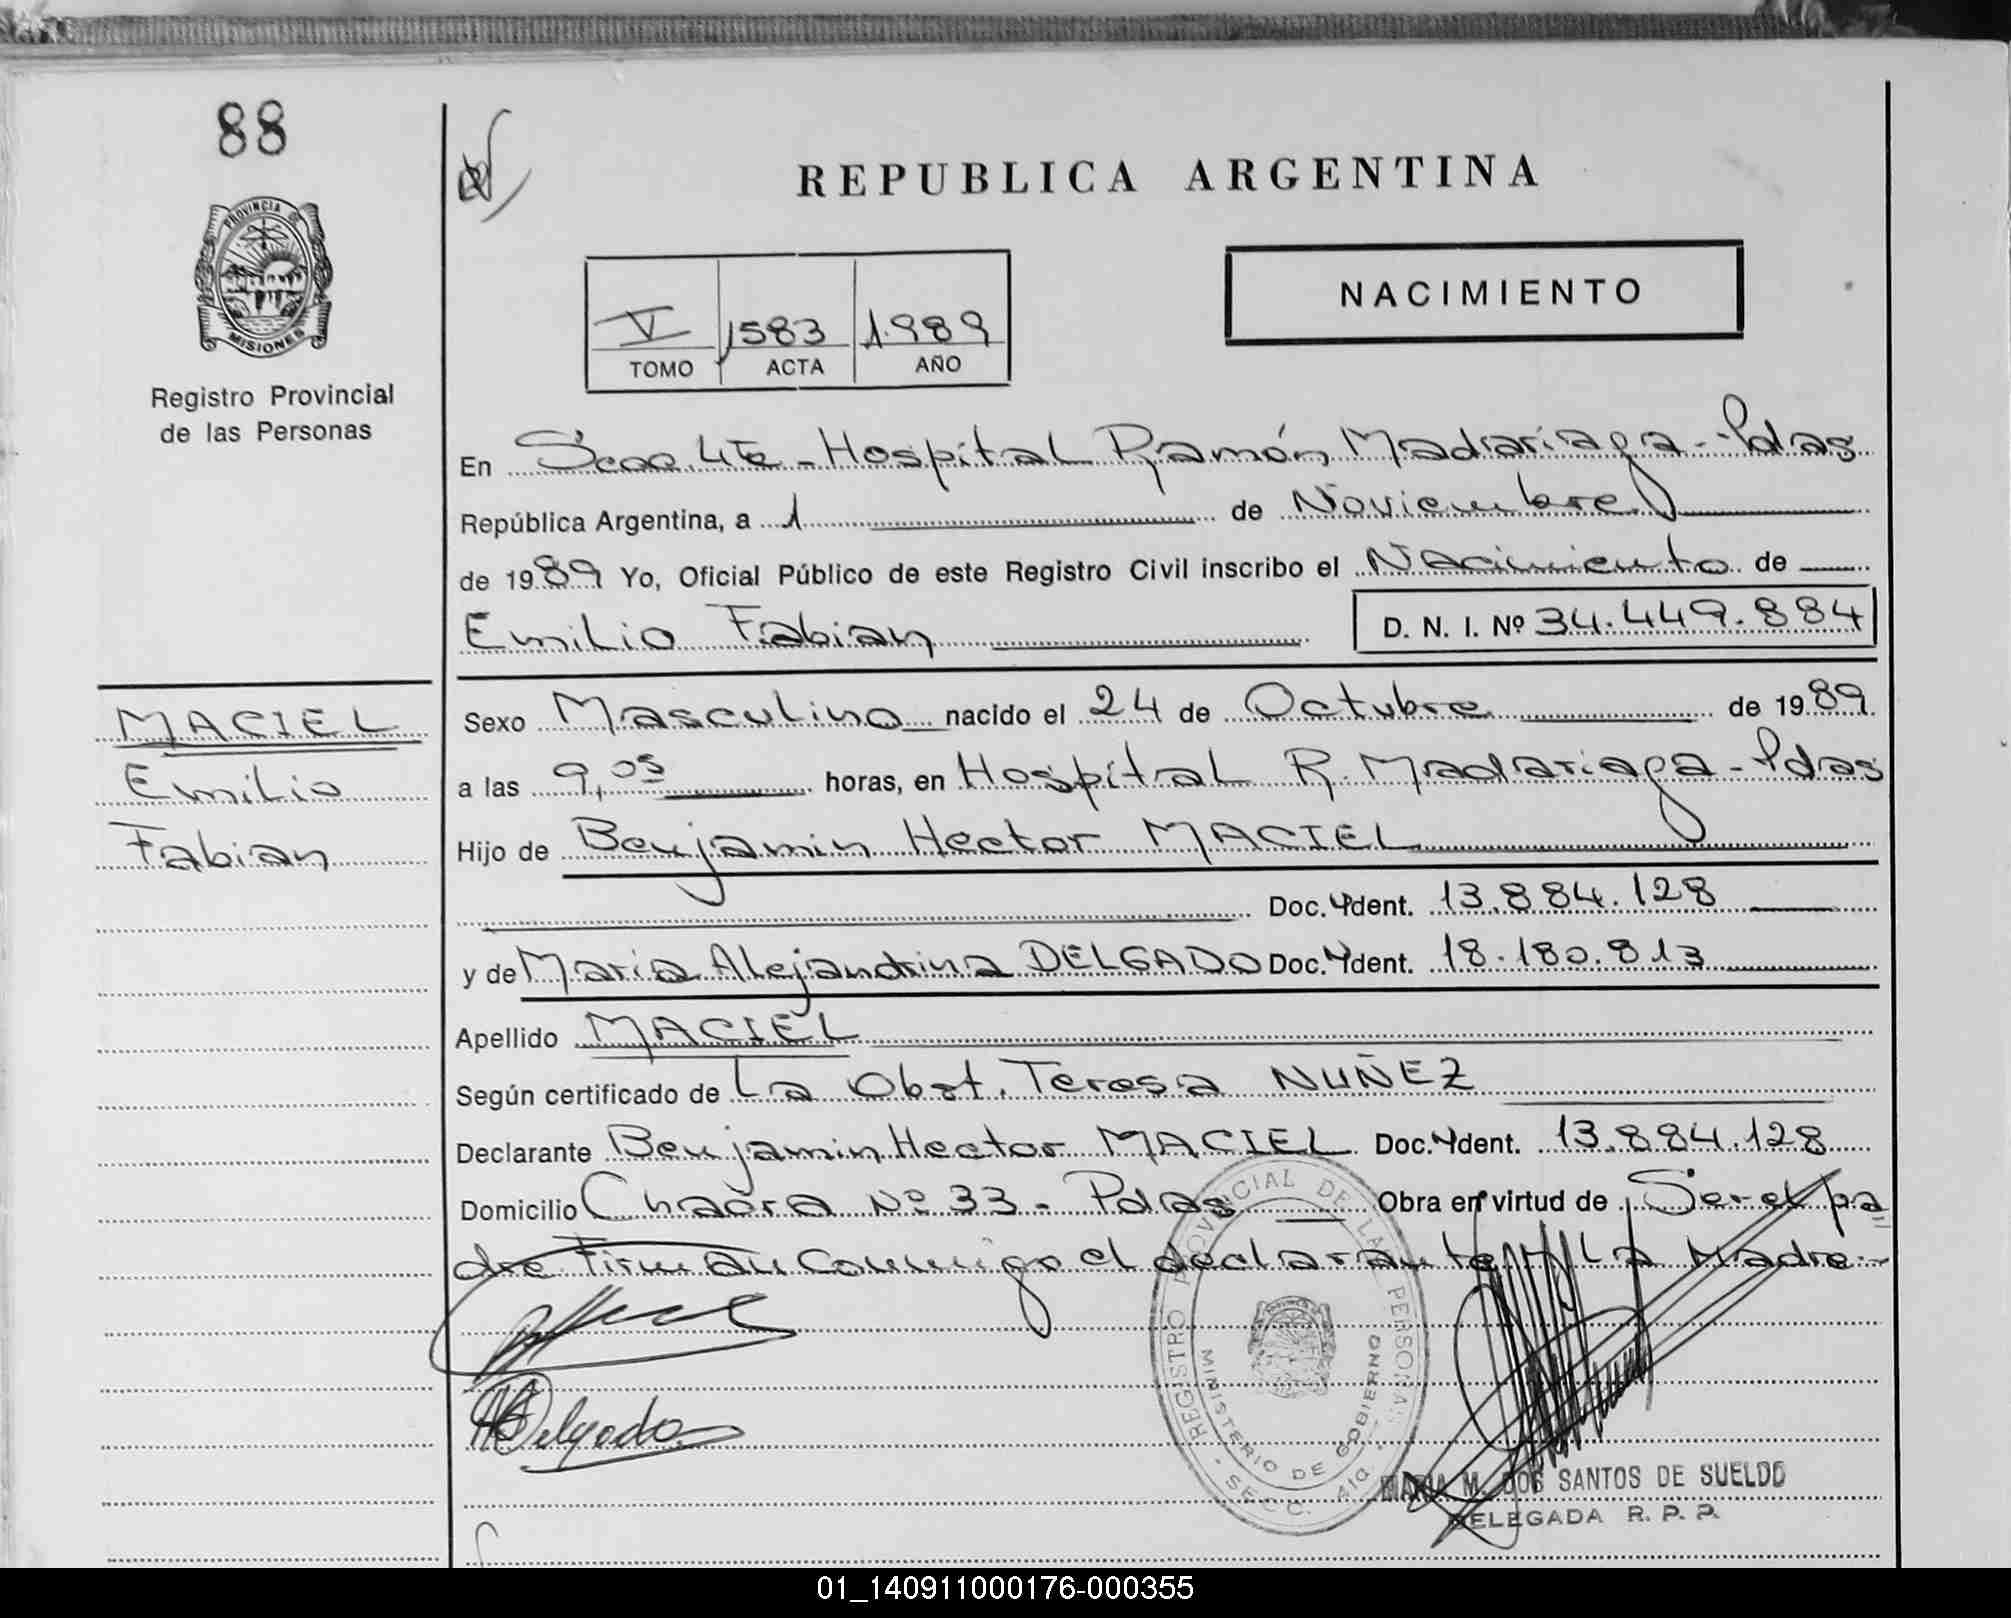 88
PROVINCIA DE
MISIONES
Registro Provincial
de las Personas
REPUBLICA ARGENTINA
NACIMIENTO
V 1583 1.989
TOMO ACTA AÑO
En Secc. 4ta - Hospital Ramón Madariaga - Pdas
República Argentina, a 1 de Noviembre
de 1989 Yo, Oficial Público de este Registro Civil inscribo el Nacimiento de
Emilio Fabian D. N. I. Nº 34.449.884
MACIEL
Emilio
Fabian
Sexo Masculino nacido el 24 de Octubre de 1989
a las 9,05 horas, en Hospital R. Madariaga - Pdas
Hijo de Benjamin Hector MACIEL
Doc. Ydent. 13.884.128
y de Maria Alejandrina DELGADO Doc. Ydent. 18.180.813
Apellido MACIEL
Según certificado de La Obst. Teresa NUÑEZ
Declarante Benjamin Hector MACIEL Doc. Ydent. 13.884.128
Domicilio Chacra Nº 33 - Pdas Obra en virtud de Ser el pa
dre Firman Conmigo el declarante y La Madre.-
REGISTRO PROVINCIAL DE LAS PERSONAS
MINISTERIO DE GOBIERNO
SECC. 4ta
Delgado
MARIA M. DOS SANTOS DE SUELDO
DELEGADA R. P. P.
01_140911000176-000355